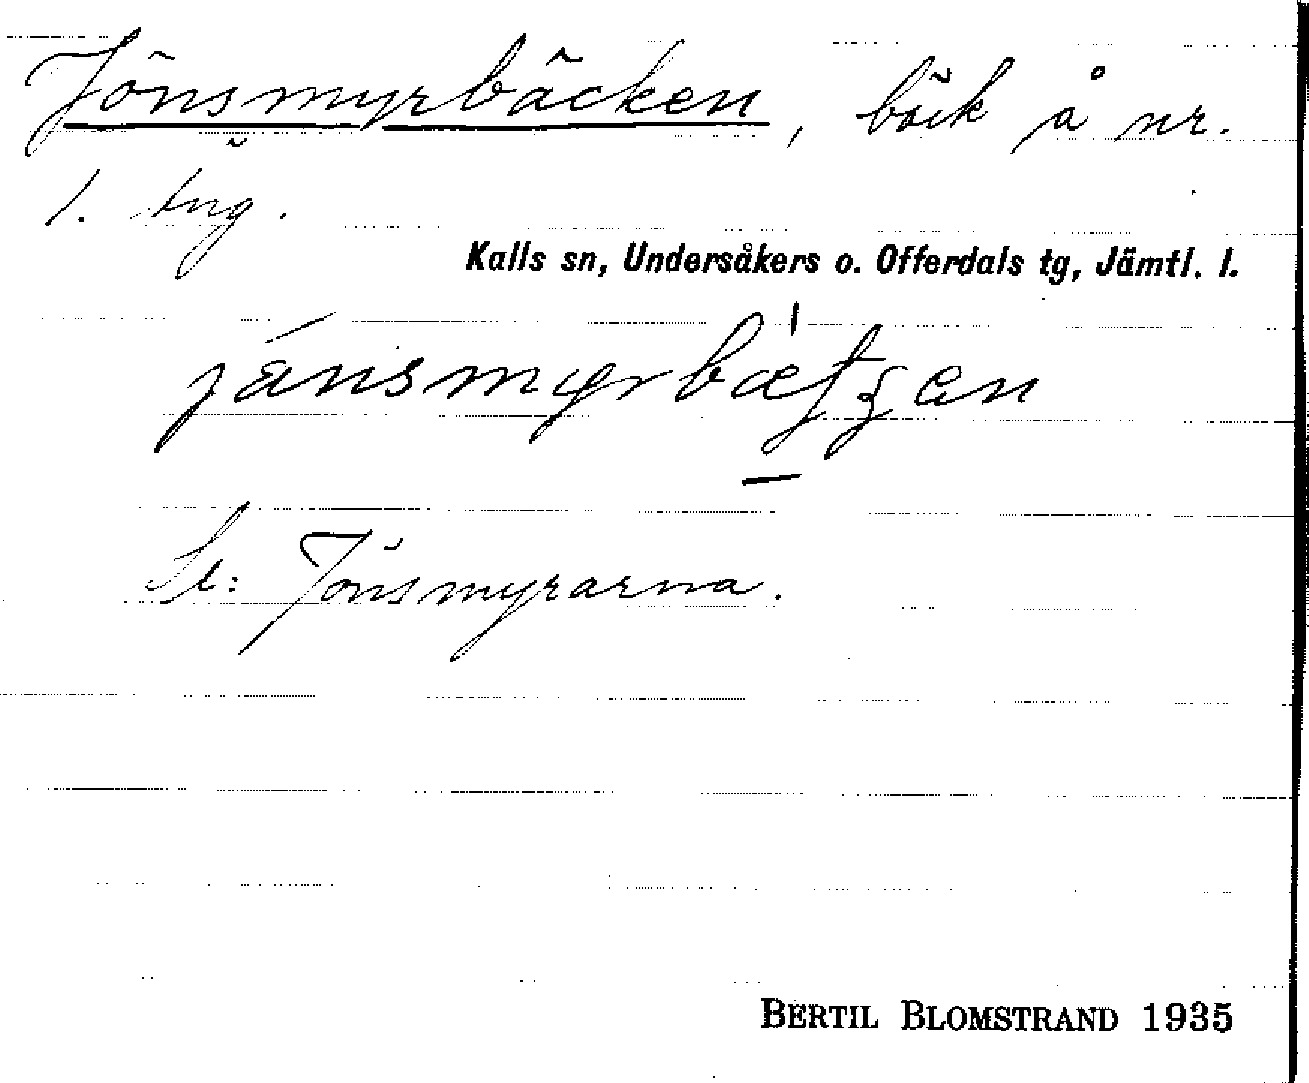 Jönsmyrbäcken, bäck å nr.
1. Äng.
Kalls sn, Undersåkers o. Offerdals tg, Jämtl. l.
Se: Jönsmyrarna.
BERTIL BLOMSTRAND 1935